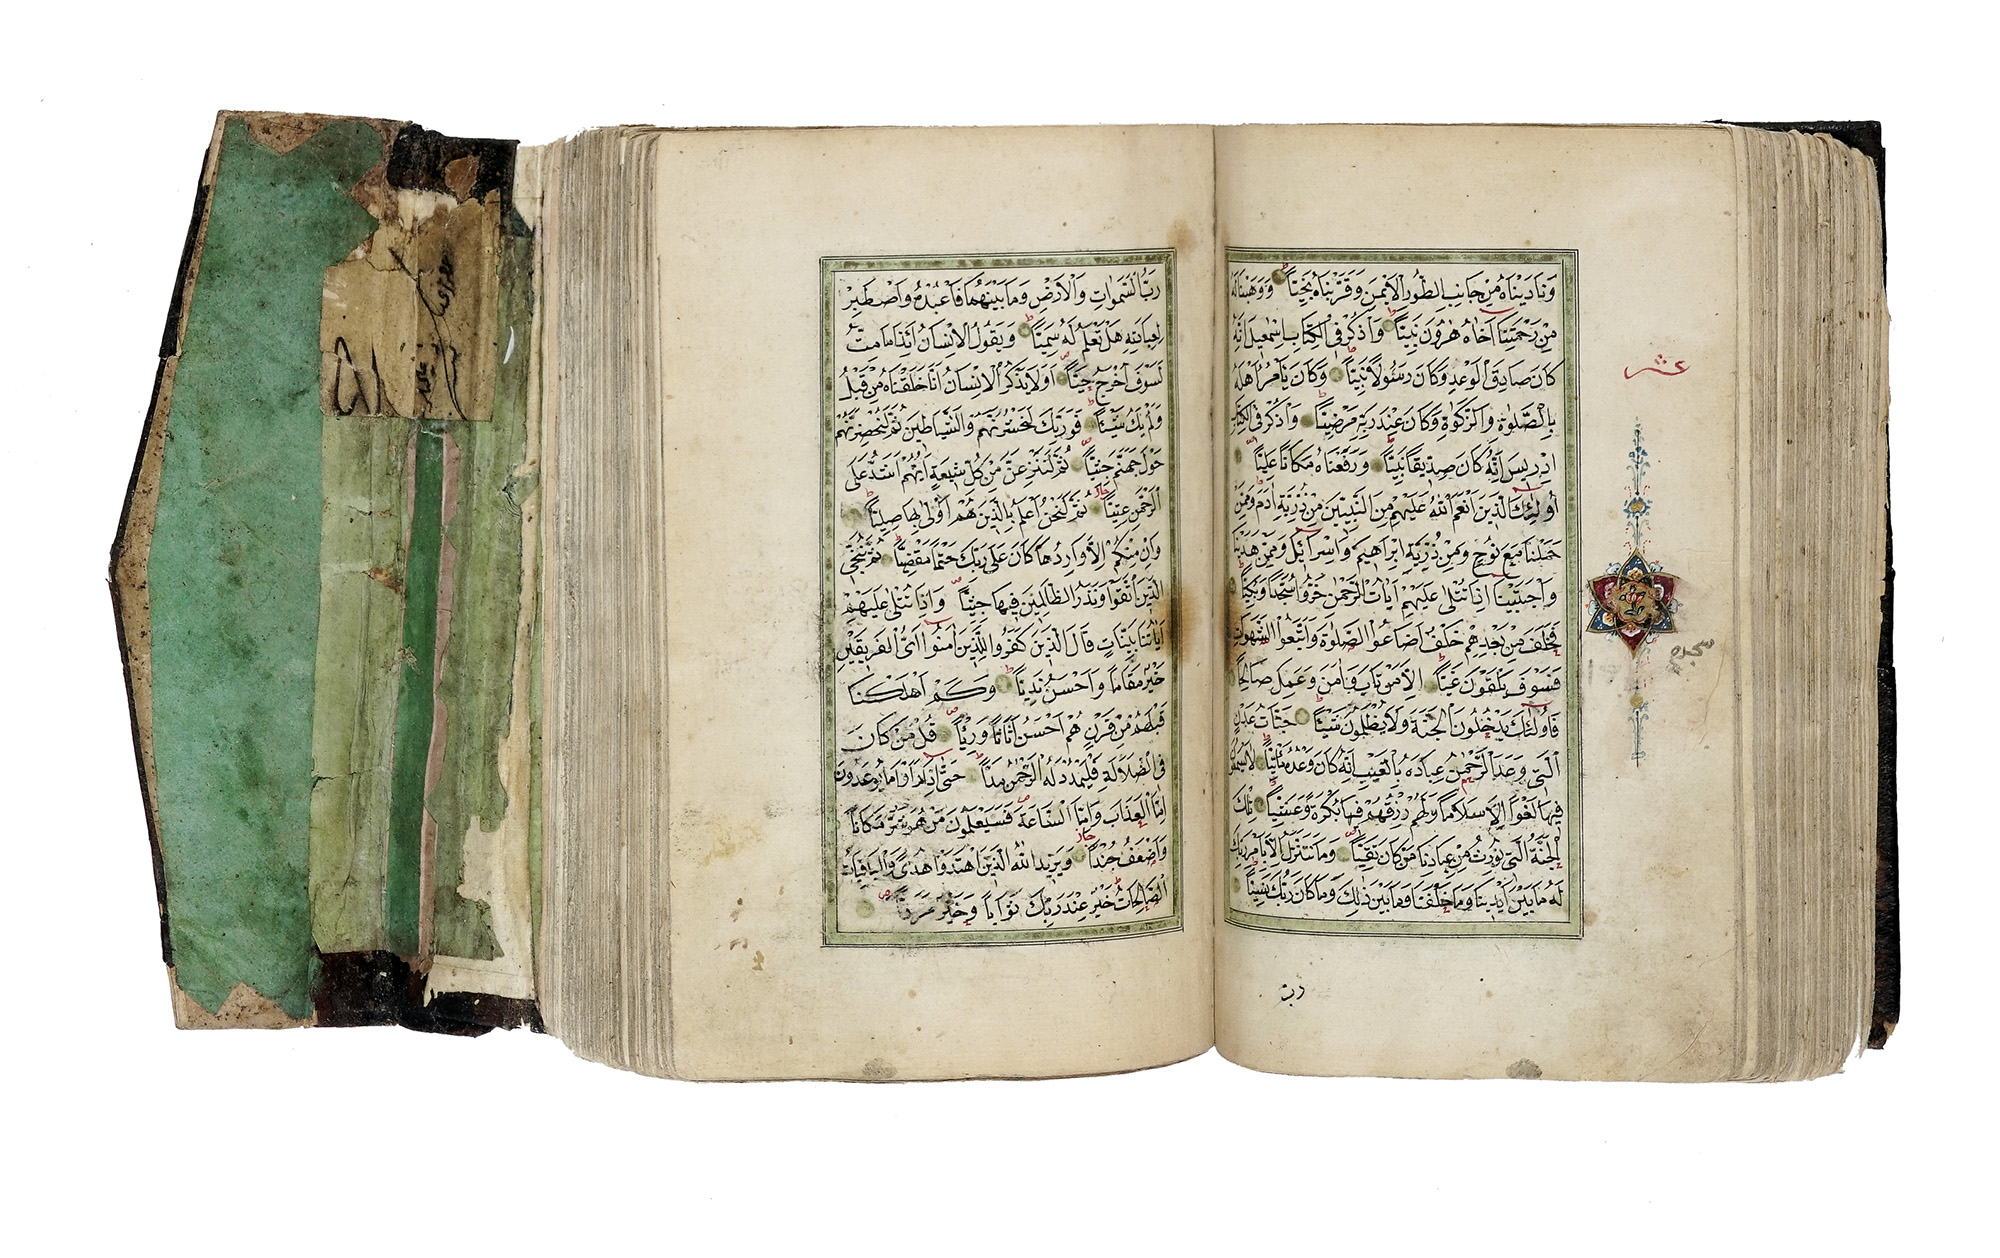 وَنَادَيْنَاهُ مِنْ جَانِبِ الطُّورِ الْاَيْمَنِ وَقَرَّبْنَاهُ نَجِيًّا وَوَهَبْنَا لَهُ
مِنْ رَحْمَتِنَا اَخَاهُ هٰرُونَ نَبِيًّا وَاذْكُرْ فِي الْكِتَابِ اِسْمٰعِيلَ اِنَّهُ
كَانَ صَادِقَ الْوَعْدِ وَكَانَ رَسُولًا نَبِيًّا وَكَانَ يَأْمُرُ اَهْلَهُ
بِالصَّلٰوةِ وَالزَّكٰوةِ وَكَانَ عِنْدَ رَبِّهِ مَرْضِيًّا وَاذْكُرْ فِي الْكِتَابِ
اِدْرِيسَ اِنَّهُ كَانَ صِدِّيقًا نَبِيًّا وَرَفَعْنَاهُ مَكَانًا عَلِيًّا
اُولٰئِكَ الَّذِينَ اَنْعَمَ اللّٰهُ عَلَيْهِمْ مِنَ النَّبِيِّينَ مِنْ ذُرِّيَّةِ اٰدَمَ وَمِمَّنْ
حَمَلْنَا مَعَ نُوحٍ وَمِنْ ذُرِّيَّةِ اِبْرٰاهِيمَ وَاِسْرَائِلَ وَمِمَّنْ هَدَيْنَا
وَاجْتَبَيْنَا اِذَا تُتْلٰى عَلَيْهِمْ اٰيَاتُ الرَّحْمٰنِ خَرُّوا سُجَّدًا وَبُكِيًّا
فَخَلَفَ مِنْ بَعْدِهِمْ خَلْفٌ اَضَاعُوا الصَّلٰوةَ وَاتَّبَعُوا الشَّهَوَاتِ
فَسَوْفَ يَلْقَوْنَ غَيًّا اِلَّا مَنْ تَابَ وَاٰمَنَ وَعَمِلَ صَالِحًا
فَاُولٰئِكَ يَدْخُلُونَ الْجَنَّةَ وَلَا يُظْلَمُونَ شَيْئًا جَنَّاتِ عَدْنٍ
الَّتِي وَعَدَ الرَّحْمٰنُ عِبَادَهُ بِالْغَيْبِ اِنَّهُ كَانَ وَعْدُهُ مَأْتِيًّا لَا يَسْمَعُونَ
فِيهَا لَغْوًا اِلَّا سَلَامًا وَلَهُمْ رِزْقُهُمْ فِيهَا بُكْرَةً وَعَشِيًّا تِلْكَ
الْجَنَّةُ الَّتِي نُورِثُ مِنْ عِبَادِنَا مَنْ كَانَ تَقِيًّا وَمَا نَتَنَزَّلُ اِلَّا بِاَمْرِ رَبِّكَ
لَهُ مَا بَيْنَ اَيْدِينَا وَمَا خَلْفَنَا وَمَا بَيْنَ ذٰلِكَ وَمَا كَانَ رَبُّكَ نَسِيًّا
عشر
سجده
رب
رَبُّ السَّمٰوَاتِ وَالْاَرْضِ وَمَا بَيْنَهُمَا فَاعْبُدْهُ وَاصْطَبِرْ
لِعِبَادَتِهِ هَلْ تَعْلَمُ لَهُ سَمِيًّا وَيَقُولُ الْاِنْسَانُ اَئِذَا مَا مِتُّ
لَسَوْفَ اُخْرَجُ حَيًّا اَوَلَا يَذْكُرُ الْاِنْسَانُ اَنَّا خَلَقْنَاهُ مِنْ قَبْلُ
وَلَمْ يَكُ شَيْئًا فَوَرَبِّكَ لَنَحْشُرَنَّهُمْ وَالشَّيَاطِينَ ثُمَّ لَنُحْضِرَنَّهُمْ
حَوْلَ جَهَنَّمَ جِثِيًّا ثُمَّ لَنَنْزِعَنَّ مِنْ كُلِّ شِيعَةٍ اَيُّهُمْ اَشَدُّ عَلَى
الرَّحْمٰنِ عِتِيًّا ثُمَّ لَنَحْنُ اَعْلَمُ بِالَّذِينَ هُمْ اَوْلٰى بِهَا صِلِيًّا
وَاِنْ مِنْكُمْ اِلَّا وَارِدُهَا كَانَ عَلٰى رَبِّكَ حَتْمًا مَقْضِيًّا ثُمَّ نُنَجِّي
الَّذِينَ اتَّقَوْا وَنَذَرُ الظَّالِمِينَ فِيهَا جِثِيًّا وَاِذَا تُتْلٰى عَلَيْهِمْ
اٰيَاتُنَا بَيِّنَاتٍ قَالَ الَّذِينَ كَفَرُوا لِلَّذِينَ اٰمَنُوا اَيُّ الْفَرِيقَيْنِ
خَيْرٌ مَقَامًا وَاَحْسَنُ نَدِيًّا وَكَمْ اَهْلَكْنَا
قَبْلَهُمْ مِنْ قَرْنٍ هُمْ اَحْسَنُ اَثَاثًا وَرِئْيًا قُلْ مَنْ كَانَ
فِي الضَّلَالَةِ فَلْيَمْدُدْ لَهُ الرَّحْمٰنُ مَدًّا حَتّٰى اِذَا رَاَوْا مَا يُوعَدُونَ
اِمَّا الْعَذَابَ وَاِمَّا السَّاعَةَ فَسَيَعْلَمُونَ مَنْ هُوَ شَرٌّ مَكَانًا
وَاَضْعَفُ جُنْدًا وَيَزِيدُ اللّٰهُ الَّذِينَ اهْتَدَوْا هُدًى وَالْبَاقِيَاتُ
الصَّالِحَاتُ خَيْرٌ عِنْدَ رَبِّكَ ثَوَابًا وَخَيْرٌ مَرَدًّا